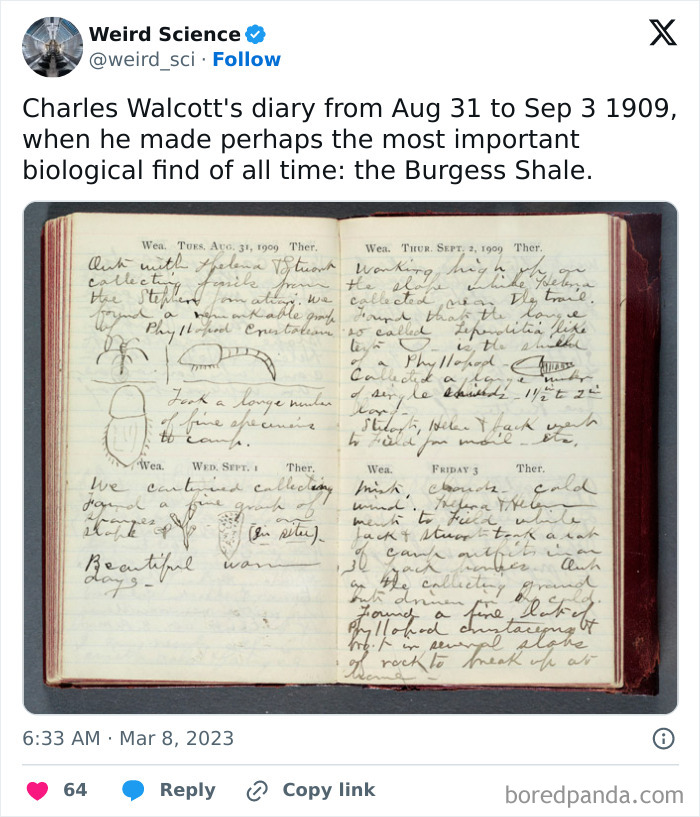 Weird Science
@weird_sci · Follow
Charles Walcott's diary from Aug 31 to Sep 3 1909,
when he made perhaps the most important
biological find of all time: the Burgess Shale.
Wea. TUES. AUG. 31, 1909 Ther.
Out with Helena & Stuart
collecting fossils from
the Stephen formation. We
found a remarkable group
of Phyllopod Crustaceans
Took a large number
of fine specimens
to camp.
Wea. WED. SEPT. 1 Ther.
We continued collecting
Found a fine group of
sponges on
slope (in situ).
Beautiful warm
days -
Wea. THUR. SEPT. 2, 1909 Ther.
Working high up on
the slope while Helena
collected near the trail.
Found that the large
so called Leperditia like
test is the shield
of a Phyllopod
Collected a large number
of single - 1 1/2" to 2"
long.
Stuart, Helen & Jack went
to Field for mail - etc.
Wea. FRIDAY 3 Ther.
Mist, clouds - cold
wind. Helena & Helen
went to Field while
Jack & Stuart took a lot
of camp outfits in on
3 pack horses. Out
on the collecting ground
but driven in by cold
Found a fine lot of
Phyllopod crustaceans &
bro't in several slabs
of rock to break up at
home -
6:33 AM · Mar 8, 2023
64 Reply Copy link
boredpanda.com